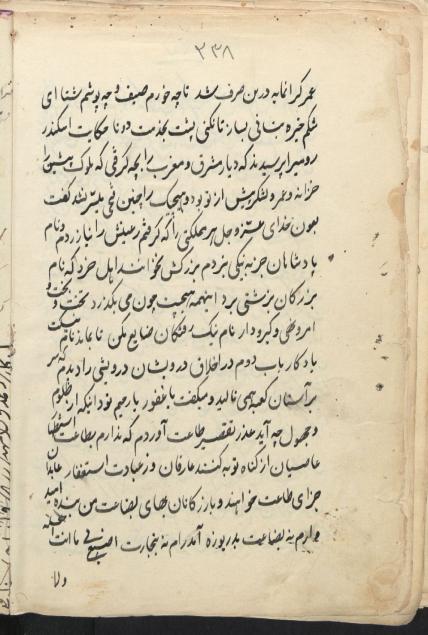 ۲۳۸
عمر گرانمایه درین صرف شد تا چه خورم صیف و چه پوشم شتا ای
شکم خیره بنانی بساز تا نکنی پشت بخدمت دوتا حکایت اسکندر
رومیرا پرسیدند که دیار مشرق و مغرب را بچه گرفتی که ملوک پیشین را
خزانه و عمر و لشکر بیش از تو بود و هیچیک را چنین فتحی میسر نشد گفت
بعون خدای عز و جل هر مملکتی را که گرفتم رعیتش را نیازردم و نام
پادشاهان جز به نیکی نبردم بزرکش نخوانند اهل خرد که نام
بزرکان بزشتی برد اینهمه هیچست چون می بگذرد تخت و بخت و
امر و نهی و گیر و دار نام نیک رفتکان ضایع مکن تا بماند نام نیکت
یادکار باب دوم در اخلاق درویشان درویشی را دیدم که سر
بر آستان کعبه همی نالید و میگفت یا غفور یا رحیم تو دانی که از ظلوم
و جهول چه آید عذر تقصیر طاعت آوردم که ندارم بطاعت استظهار
عاصیان از گناه توبه کنند عارفان و ز عبادت استغفار عابدان
جزای طاعت خواهند و بازرکانان بهای بضاعت من بنده امید
دارم نه بضاعت بدریوزه آمده‌ام نه بتجارت اصنع بی ما انت اهله
ولا